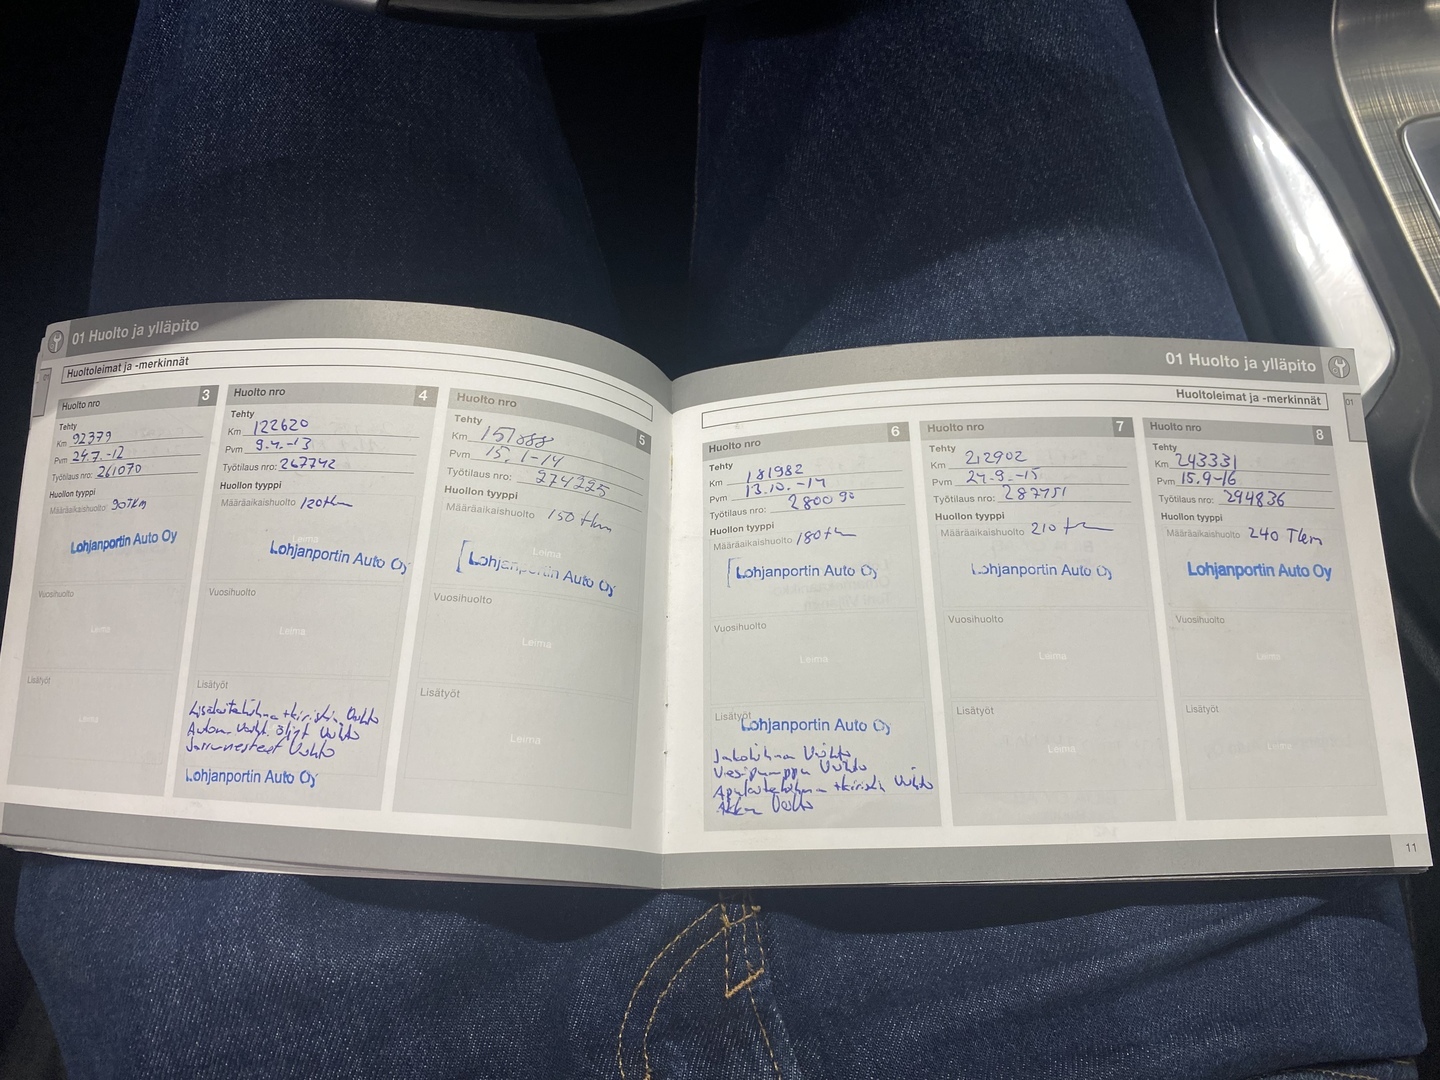 01 Huolto ja ylläpito
Huoltoleimat ja -merkinnät
Huolto nro 3
Tehty
Km 92379
Pvm 24.7.-12
Työtilaus nro: 261070
Huollon tyyppi
Määräaikaishuolto 90Tkm
Lohjanportin Auto Oy
Vuosihuolto
Leima
Lisätyöt
Leima
Huolto nro 4
Tehty
Km 122620
Pvm 9.4.-13
Työtilaus nro: 267742
Huollon tyyppi
Määräaikaishuolto 120tkm
Leima
Lohjanportin Auto Oy
Vuosihuolto
Leima
Lisätyöt
Lisälaitehihna + kiristin Vaihto
Autom. vaiht. öljyt Vaihto
Jarrunesteet Vaihto
Lohjanportin Auto Oy
Huolto nro 5
Tehty
Km 151888
Pvm 15.1-14
Työtilaus nro: 274225
Huollon tyyppi
Määräaikaishuolto 150 tkm
Leima
Lohjanportin Auto Oy
Vuosihuolto
Leima
Lisätyöt
Leima
01 Huolto ja ylläpito
Huoltoleimat ja -merkinnät
01
Huolto nro 6
Tehty
Km 181982
Pvm 13.10.-14
Työtilaus nro: 280090
Huollon tyyppi
Määräaikaishuolto 180tkm
Lohjanportin Auto Oy
Vuosihuolto
Leima
Lisätyöt
Lohjanportin Auto Oy
Jakohihna Vaihto
Vesipumppu Vaihto
Apulaitehihna + kiristin Vaihto
Akku Vaihto
Huolto nro 7
Tehty
Km 212902
Pvm 24.9.-15
Työtilaus nro: 287751
Huollon tyyppi
Määräaikaishuolto 210 tkm
Lohjanportin Auto Oy
Vuosihuolto
Leima
Lisätyöt
Leima
Huolto nro 8
Tehty
Km 243331
Pvm 15.9-16
Työtilaus nro: 294836
Huollon tyyppi
Määräaikaishuolto 240 Tkm
Lohjanportin Auto Oy
Vuosihuolto
Leima
Lisätyöt
Leima
11